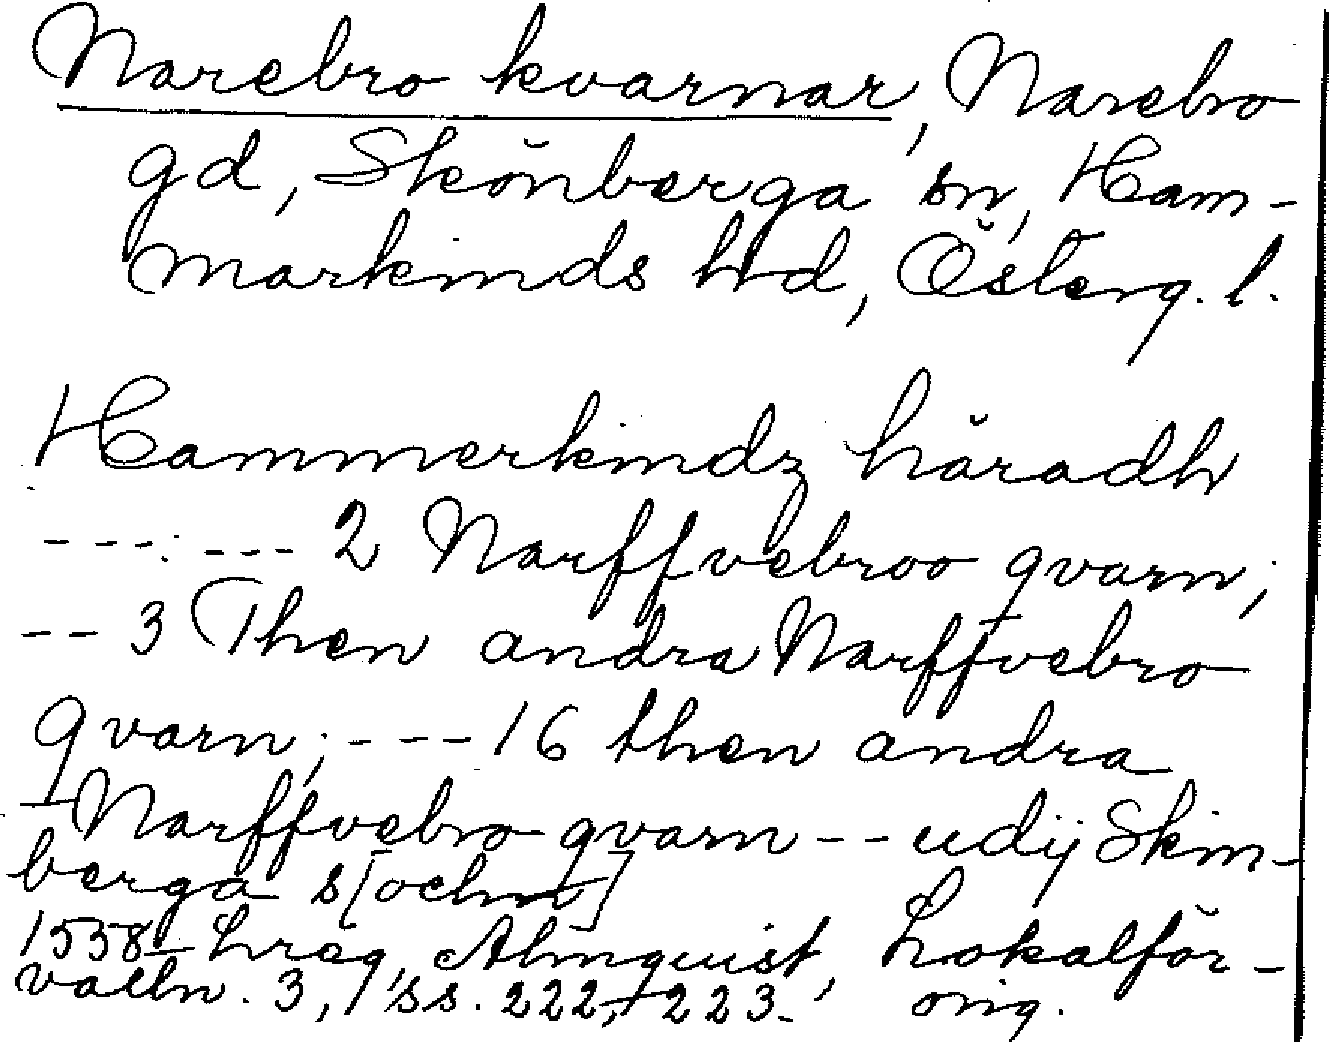 Narebro kvarnar, Narebro
gd, Skönberga sn, Ham-
markinds hd, Österg. l.
Hammerkindz häradh
--- --- 2 Narffvebroo qvarn;
-- 3 Then andra Narffvebro
qvarn; --- 16 then andra
Narffvebro qvarn -- udij Skin-
berga s[ochn]
1538 Lreg, Almquist, Lokalför-
valtn. 3, 1 ss. 222, 223. orig.